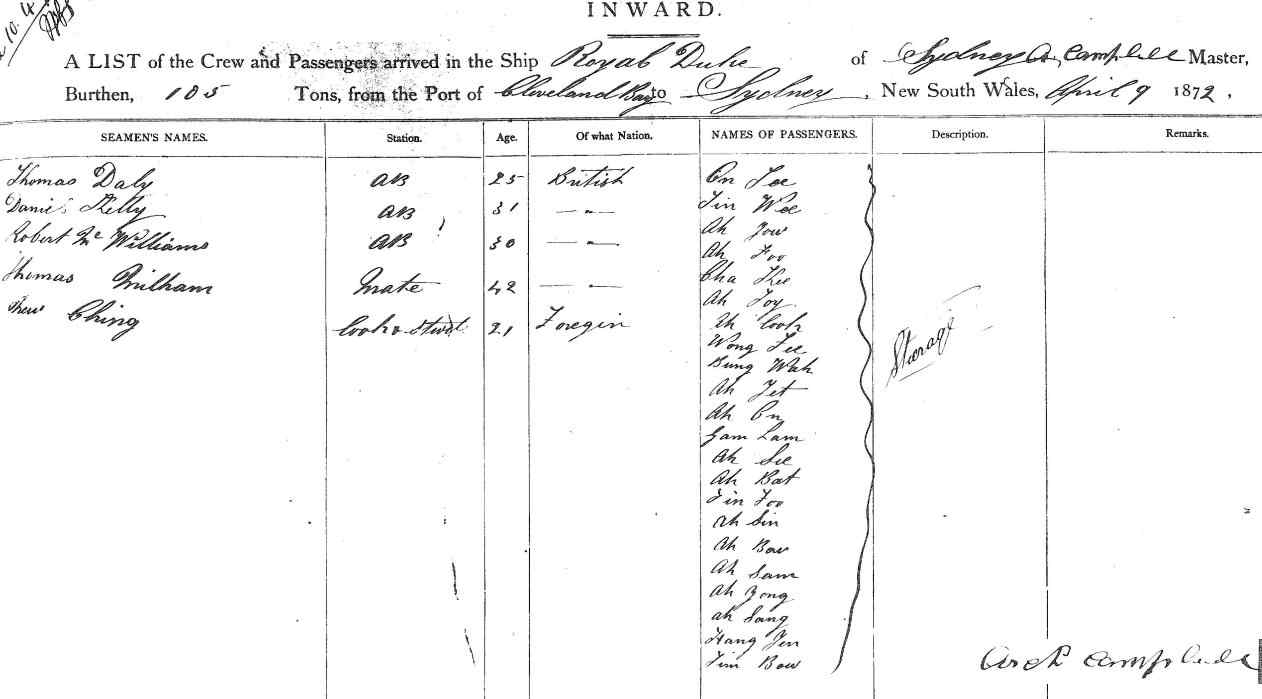 INWARD.
A LIST of the Crew and Passengers arrived in the Ship Royal Duke of Sydney A. Campbell Master,
Burthen, 105 Tons, from the Port of Cleveland Bay to Sydney, New South Wales, April 9 1872,
SEAMEN'S NAMES. Station. Age. Of what Nation. NAMES OF PASSENGERS. Description. Remarks.
Thomas Daly AB 25 British On Lee
Daniel Kelly AB 31 — " — Tin Wee
Ah Jow
Robert McWilliams AB 30 — " — Ah Foo
Cha Kee
Thomas Milham Mate 42 — " — Ah Foy
Ching Cook & Stwd 21 Foregin Ah Cook
Wong Lee
Bung Wah
Steerage
Ah Yet
Ah On
Gam Lam
Ah See
Ah Bat
Tin Foo
Ah Sin
Ah Bow
Ah Sam
Ah Bong
Ah Sang
Hang Jen
Tim Bow
Arch Campbell